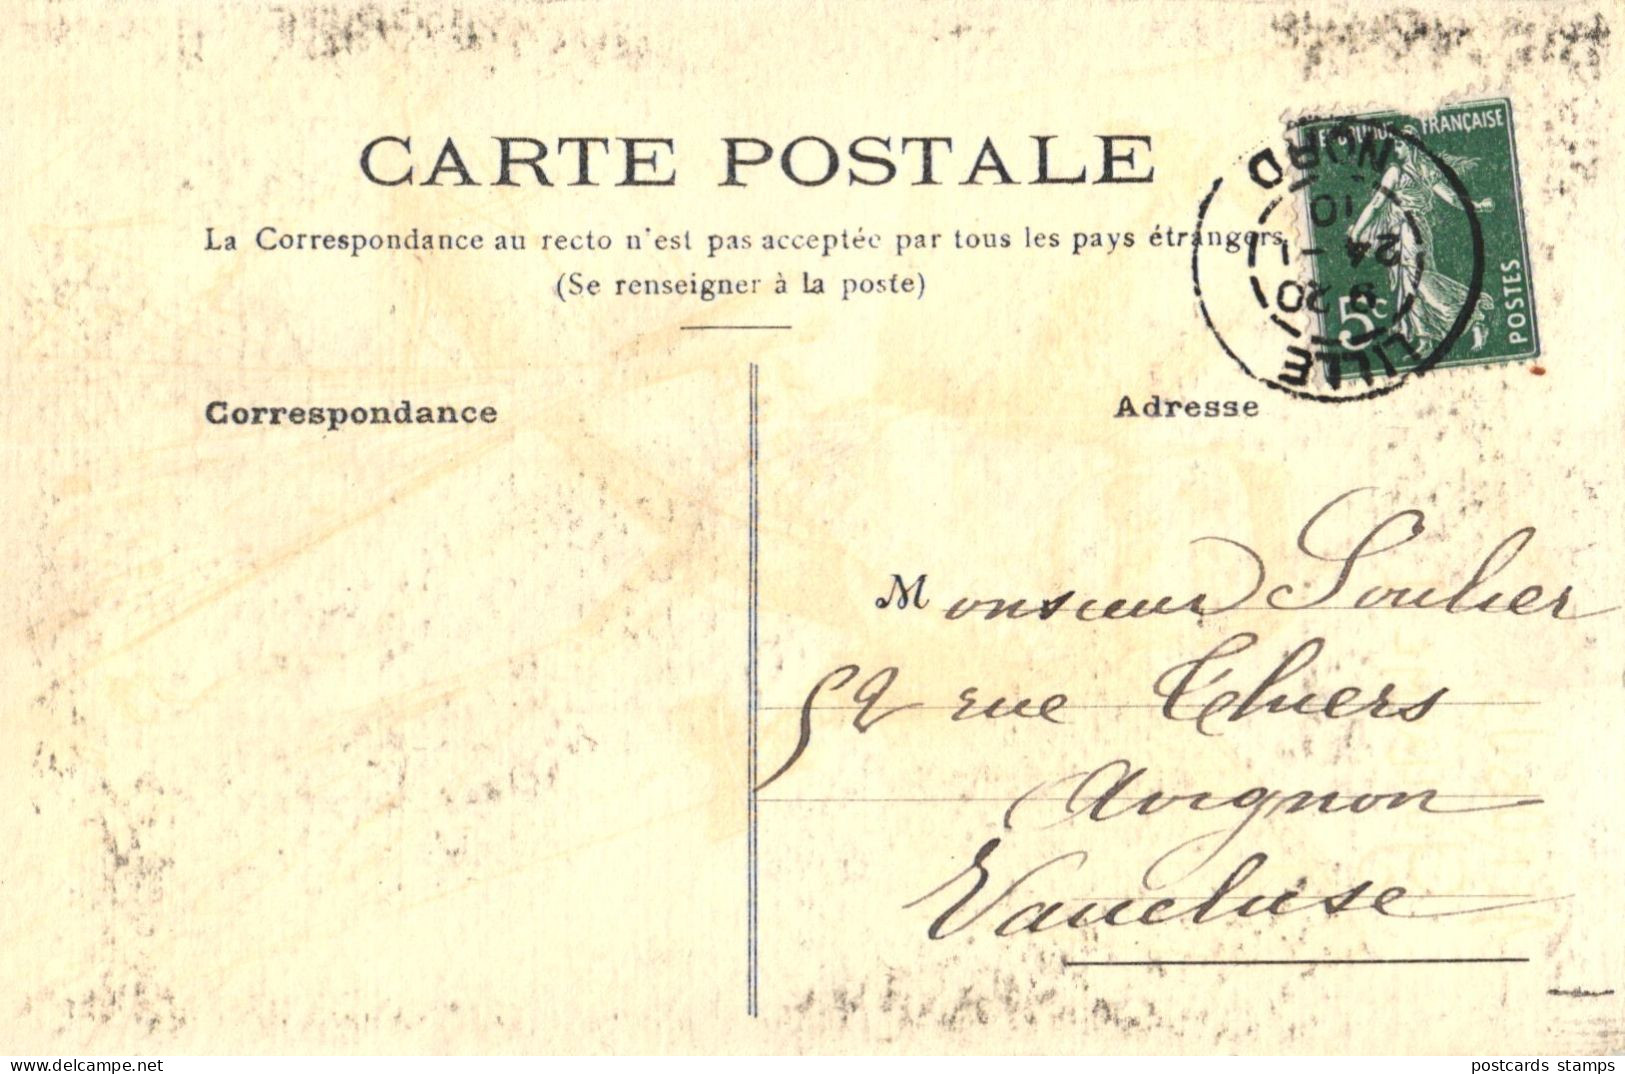 CARTE POSTALE
La Correspondance au recto n'est pas acceptée par tous les pays étrangers
(Se renseigner à la poste)
Correspondance
Adresse
REPUBLIQUE FRANÇAISE
POSTES
5c
LILLE
9 20
24 - 1
10
NORD
Monsieur Soulier
52 rue Thiers
Avignon
Vaucluse
delcampe.net
postcards stamps